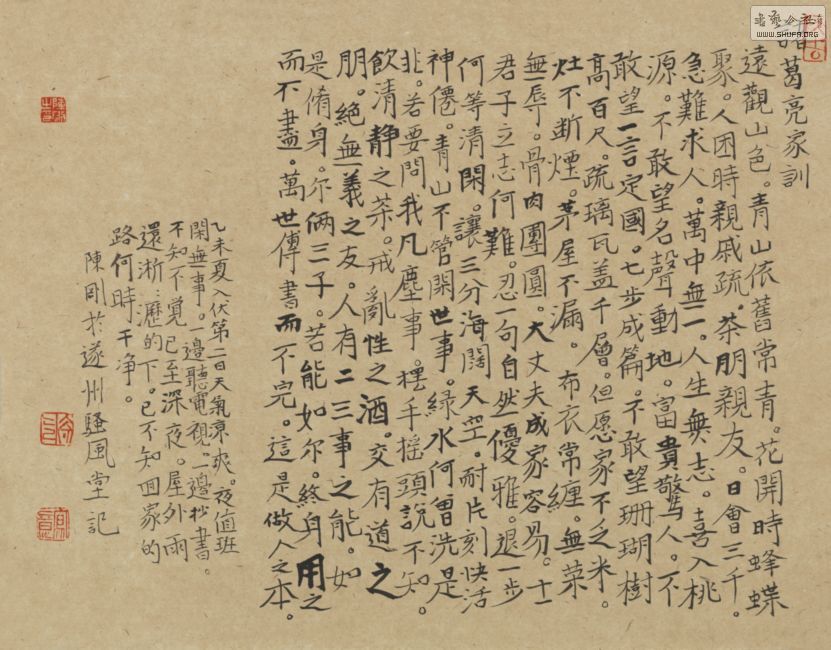 書藝公社
WWW.SHUFA.ORG
諸葛亮家訓
遠觀山色。青山依舊常青。花開時蜂蝶
聚。人困時親戚疏。茶朋親友。日會三千。
急難求人。萬中無一。人生無志。喜入桃
源。不敢望名聲動地。富貴驚人。不
敢望一言定國。七步成篇。不敢望珊瑚樹
高百尺。疏璃瓦盖千層。但愿家不乏米。
灶不断煙。茅屋不漏。布衣常纏。無菜
無辱。骨肉團圓。大丈夫成家容易。士
君子立志何難。忍一句自然優雅。退一步
何等清閑。讓三分海闊天空。耐片刻快活
神僊。青山不管閑世事。緑水何曾洗是
非。若要問我凡塵事。摆手摇頭說不知。
飲清静之茶。戒亂性之酒。交有道之
朋。絕無義之友。人有二三事之能。如
是脩身。尔俩三子。若能如尔。終身用之
而不盡。萬世傳書而不完。這是做人之本。
乙未夏入伏第二日天氣凉爽。夜值班
閑無事。一邊聽電視。一邊抄書。
不知不覺已至深夜。屋外雨
還淅:瀝的下。已不知回家的
路何時干净。
陳剛於遂州騷風堂記